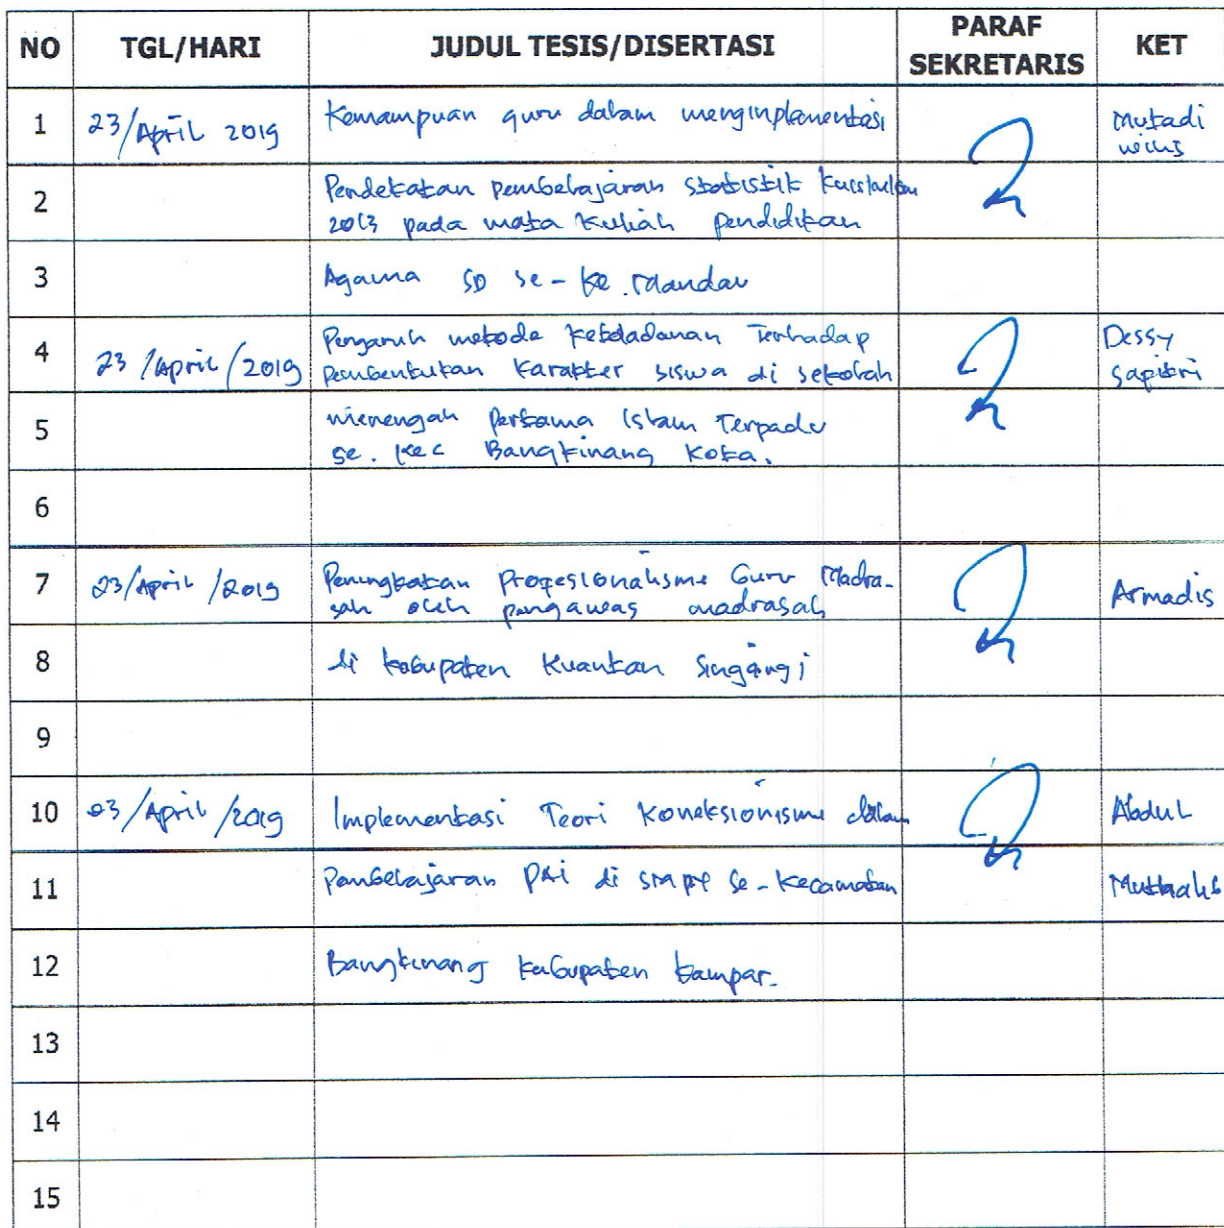 NO TGL/HARI JUDUL TESIS/DISERTASI PARAF SEKRETARIS KET
1 23/April 2019 Kemampuan guru dalam menginplementasi Mutadi
2 Pendekatan pembelajaran statistik
2013 pada mata kuliah pendidikan
3 Agama SD se-Ke. Mandau
4 23/April/2019 Pengaruh metode keteladanan Terhadap Dessy
pembentukan karakter siswa di sekolah Sapitri
5 menengah pertama Islam Terpadu
se. Kec Bangkinang Kota.
6
7 23/April/2019 Peningkatan Profesionalisme Guru Madra- Armadis
sah oleh pengawas madrasah
8 di kabupaten Kuantan Singingi
9
10 23/April/2019 Implementasi Teori Koneksionisme dalam Abdul
11 Pembelajaran PAI di se-Kecamatan
12 Bangkinang Kabupaten Kampar.
13
14
15